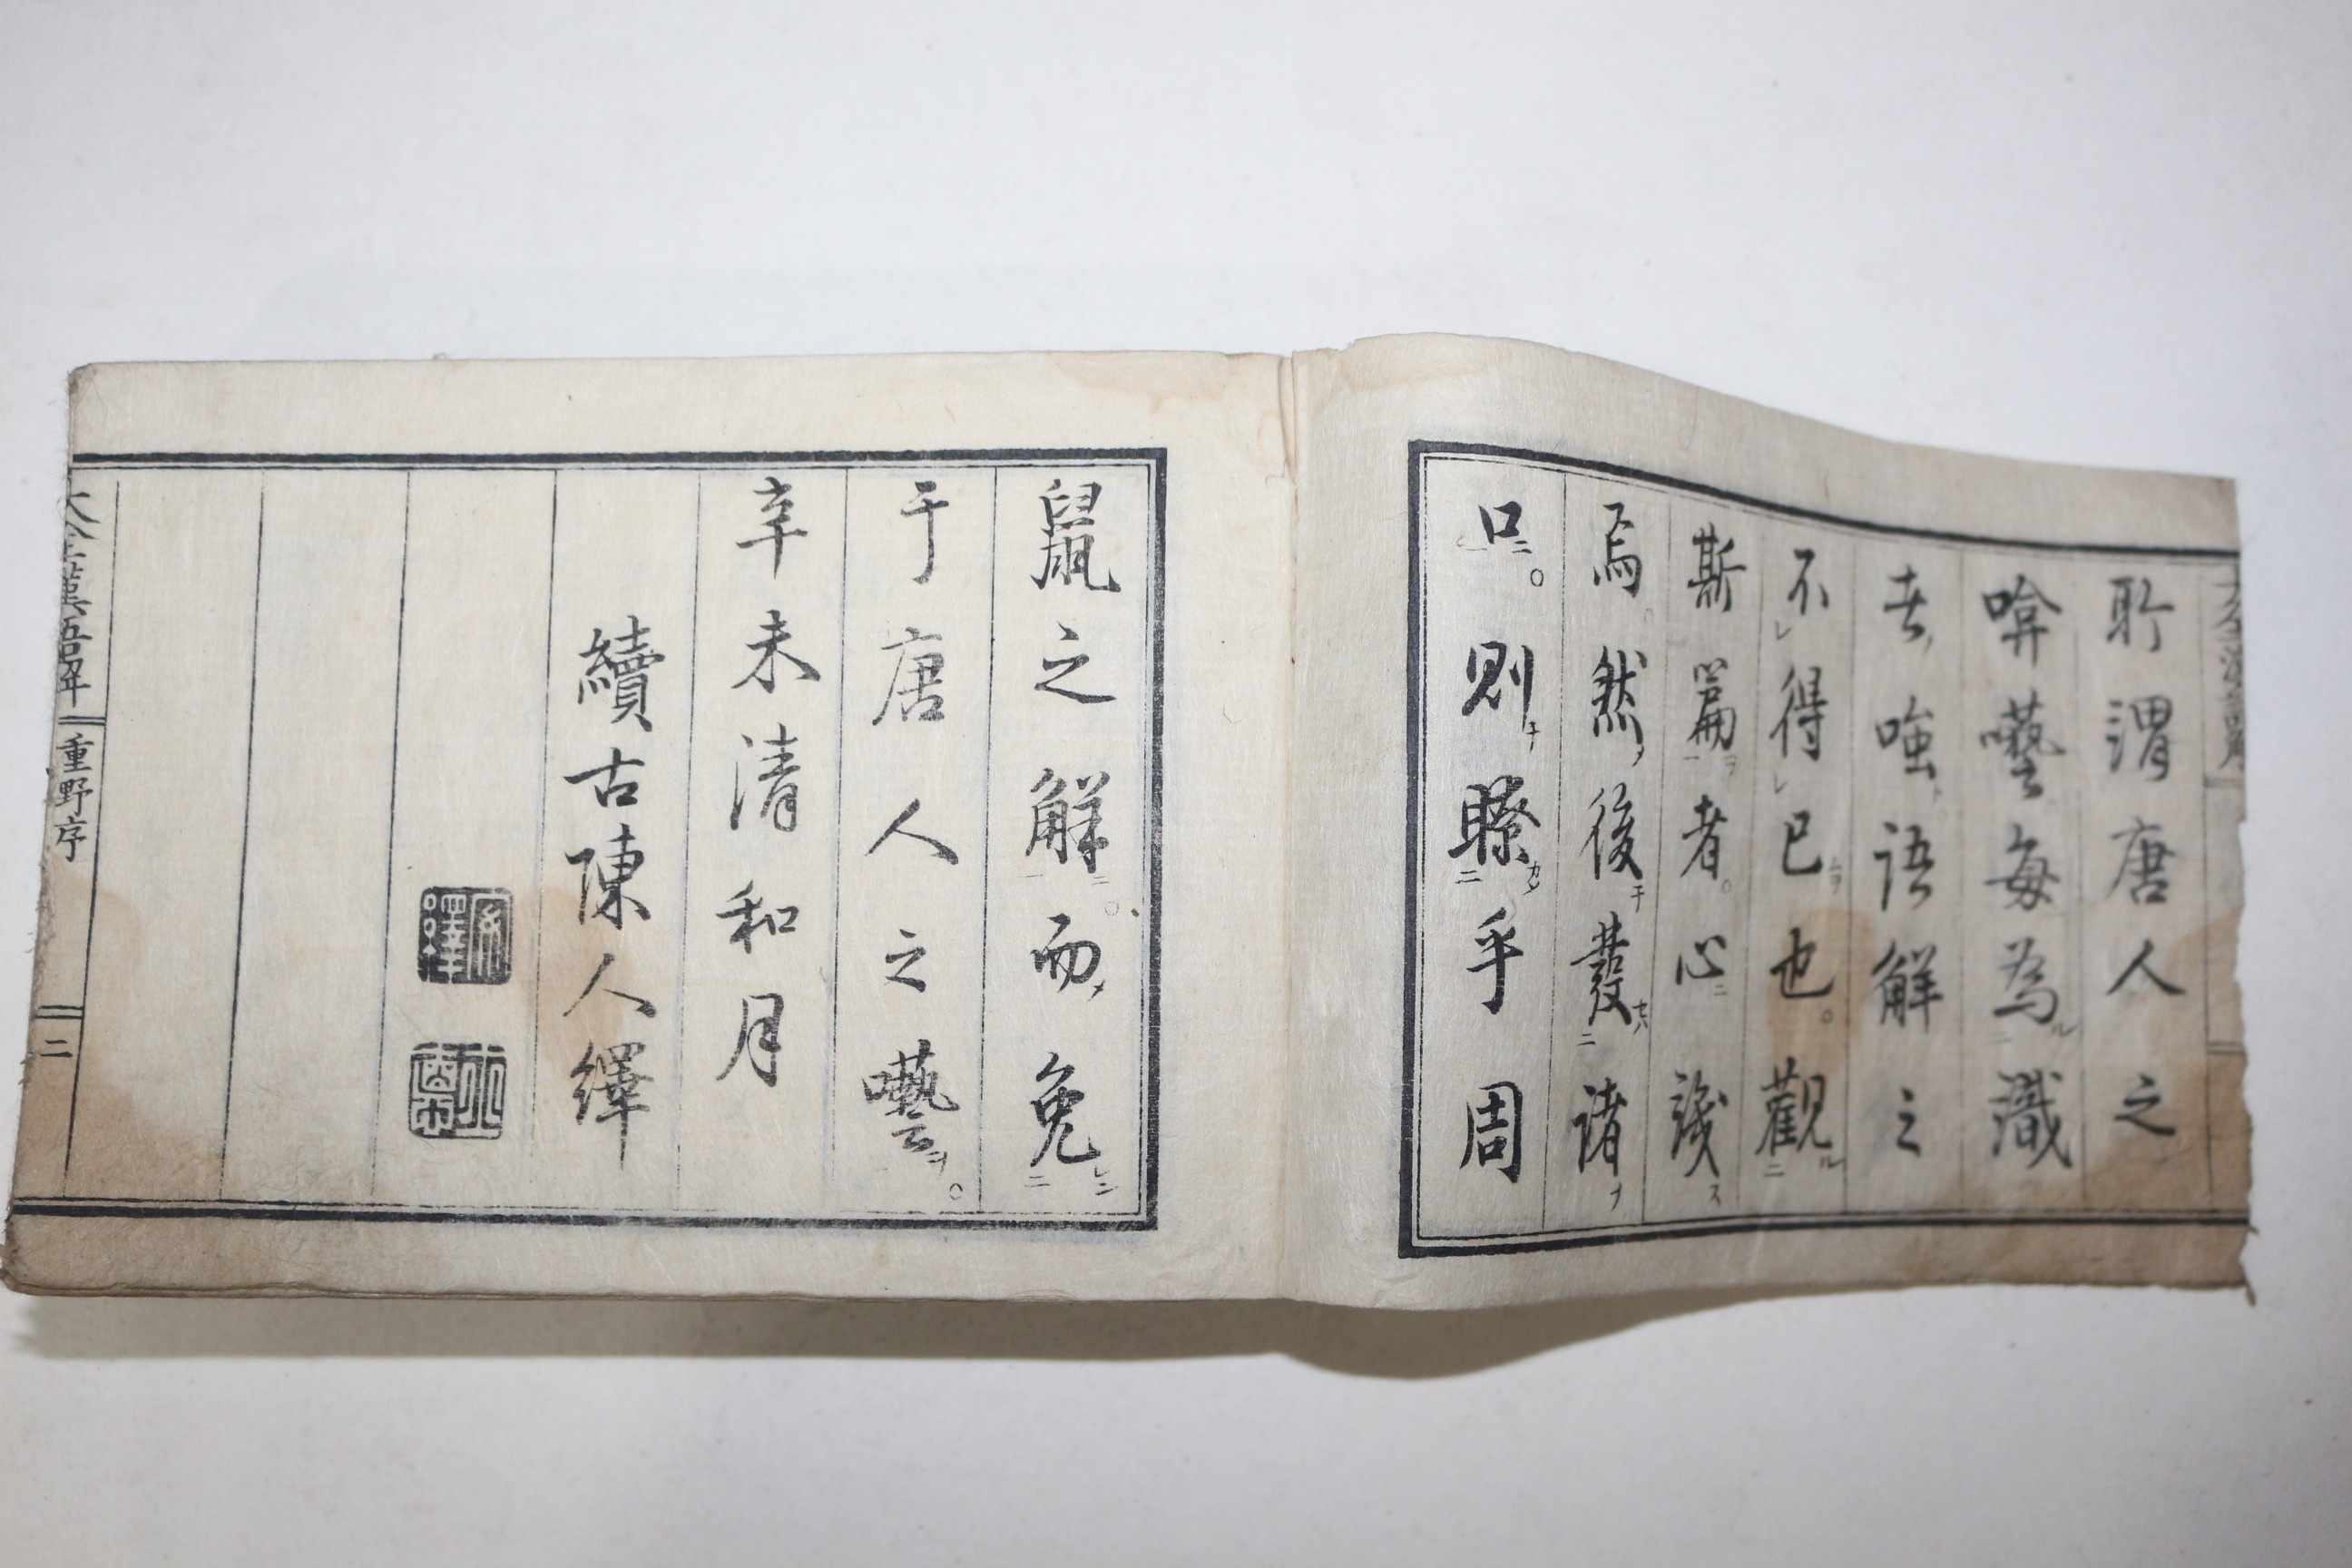 所謂唐人之
唅囈每為識
者嗤語解之
不得已也。觀
斯篇者。心識
焉。然後發諸
口。則瞭乎周
鼠之解。而免
于唐人之囈。
辛未清和月
續古陳人繹
重野序
二